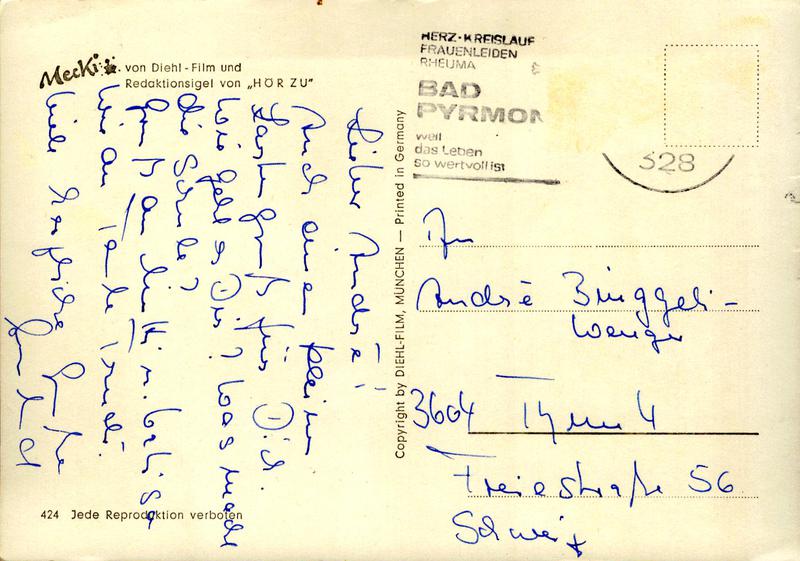 Mecki von Diehl-Film und
Redaktionsigel von „HÖR ZU"
HERZ-KREISLAUF
FRAUENLEIDEN
RHEUMA
BAD
PYRMON
weil
das Leben
so wertvoll ist
328
Copyright by DIEHL-FILM, MÜNCHEN — Printed in Germany
Lieber André!
Auch einen kleinen
Kartengruß für Dich.
Wie geht es Dir? Was macht
die Schule?
Gruß an
wie an Tante Trudi.
Viele herzliche Grüße
An
André Binggeli-
Wenger
3604 Thun 4
Freiestraße 56
Schweiz
424 Jede Reproduktion verboten